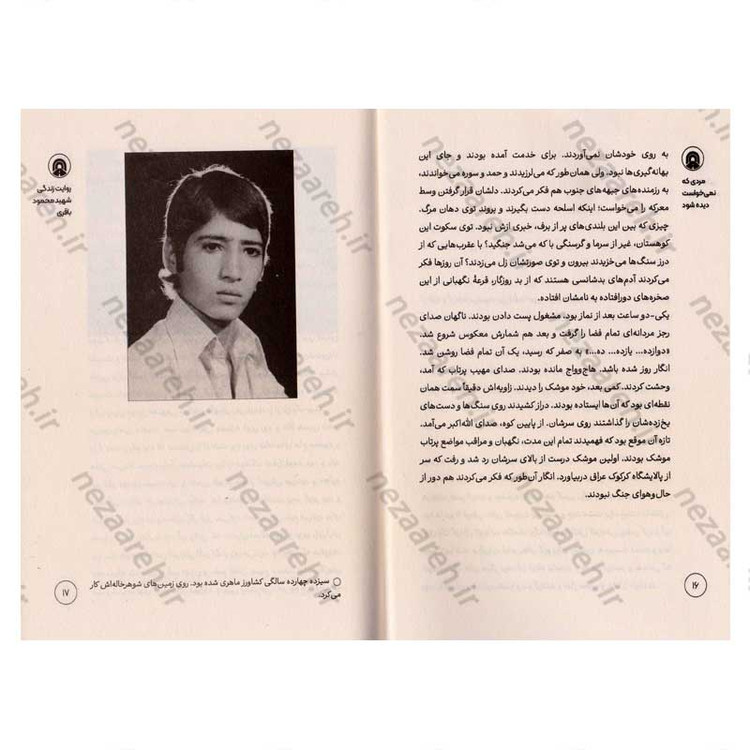 مردی که
نمی‌خواست
دیده شود
به روی خودشان نمی‌آوردند. برای خدمت آمده بودند و جای این
بهانه‌گیری‌ها نبود. ولی همان‌طور که می‌لرزیدند و حمد و سوره می‌خواندند،
به رزمنده‌های جبهه‌های جنوب هم فکر می‌کردند. دلشان قرار گرفتن وسط
معرکه را می‌خواست؛ اینکه اسلحه دست بگیرند و بروند توی دهان مرگ.
چیزی که بین این بلندی‌های پر از برف، خبری ازش نبود. توی سکوت این
کوهستان، غیر از سرما و گرسنگی با که می‌شد جنگید؟ با عقرب‌هایی که از
درز سنگ‌ها می‌خزیدند بیرون و توی صورتشان زل می‌زدند؟ آن روزها فکر
می‌کردند آدم‌های بدشانسی هستند که از بد روزگار، قرعهٔ نگهبانی از این
صخره‌های دورافتاده به نامشان افتاده.
یکی-دو ساعت بعد از نماز بود. مشغول پست دادن بودند. ناگهان صدای
رجز مردانه‌ای تمام فضا را گرفت و بعد هم شمارش معکوس شروع شد.
«دوازده... یازده... ده...» به صفر که رسید، یک آن تمام فضا روشن شد.
انگار روز شده باشد. هاج‌وواج مانده بودند. صدای مهیب پرتاب که آمد،
وحشت کردند. کمی بعد، خود موشک را دیدند. زاویه‌اش دقیقاً سمت همان
نقطه‌ای بود که آن‌ها ایستاده بودند. دراز کشیدند روی سنگ‌ها و دست‌های
یخ‌زده‌شان را گذاشتند روی سرشان. از پایین کوه، صدای الله‌اکبر می‌آمد.
تازه آن موقع بود که فهمیدند تمام این مدت، نگهبان و مراقب مواضع پرتاب
موشک بودند. اولین موشک درست از بالای سرشان رد شد و رفت که سر
از پالایشگاه کرکوک عراق دربیاورد. انگار آن‌طور که فکر می‌کردند هم دور از
حال‌وهوای جنگ نبودند.
۱۶
روایت زندگی
شهید محمود
باقری
سیزده چهارده سالگی کشاورز ماهری شده بود. روی زمین‌های شوهرخاله‌اش کار
می‌کرد.
۱۷
nezaareh.ir
nezaareh.ir
nezaareh.ir
nezaareh.ir
nezaareh.ir
nezaareh.ir
nezaareh.ir
nezaareh.ir
nezaareh.ir
nezaareh.ir